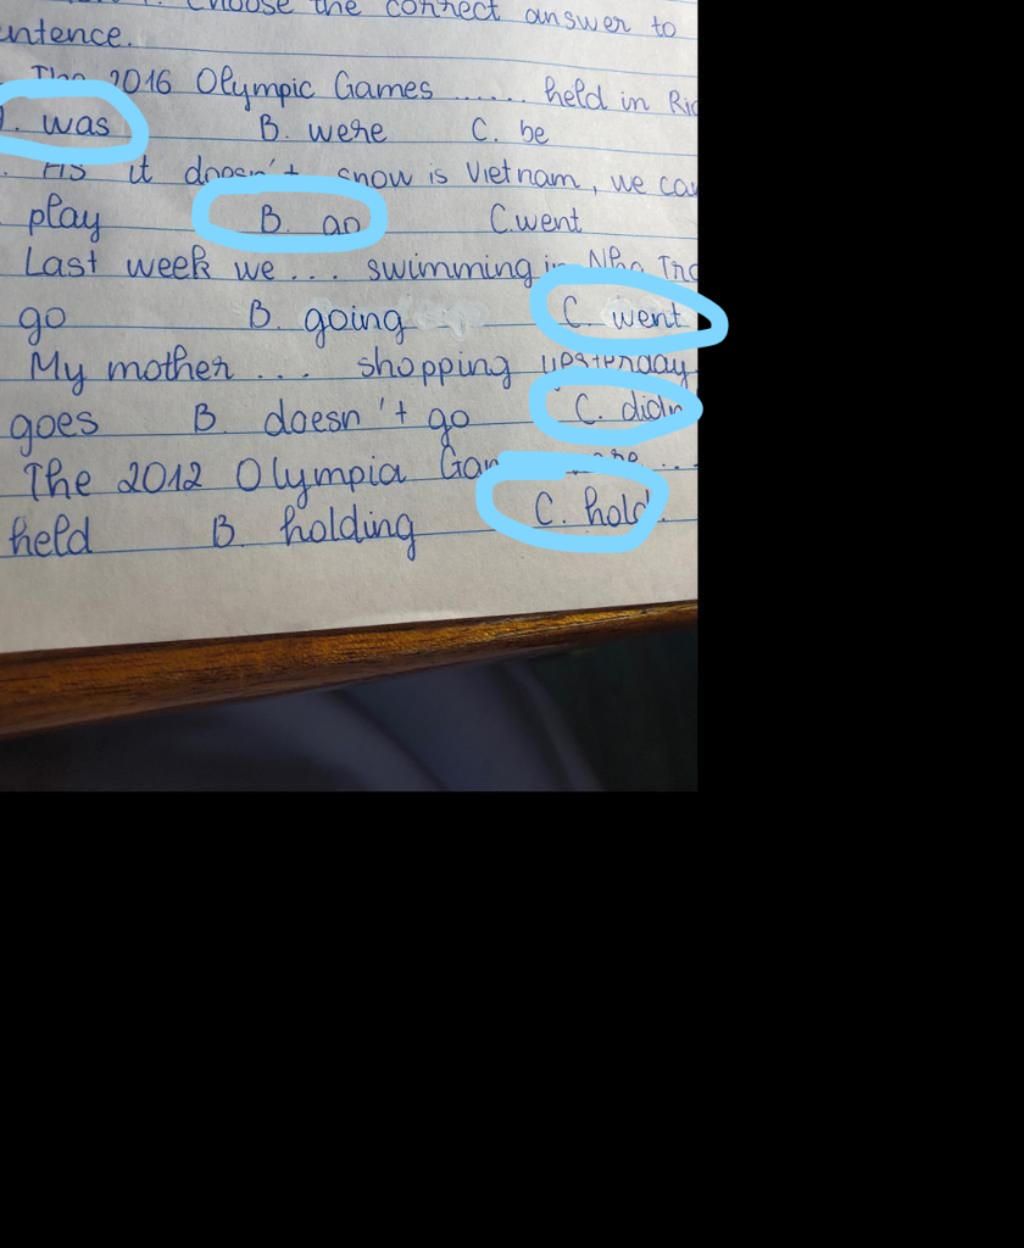 Choose the correct answer to
entence.
The 2016 Olympic Games ...... held in Rio
A. was B. were C. be
As it doesn't snow is Vietnam, we can
play B. go C.went
Last week we ... swimming in Nha Tra
go B. going C. went
My mother ... shopping yesterday
goes B. doesn't go C. didn
The 2012 Olympia Gam ...
held B. holding C. hold